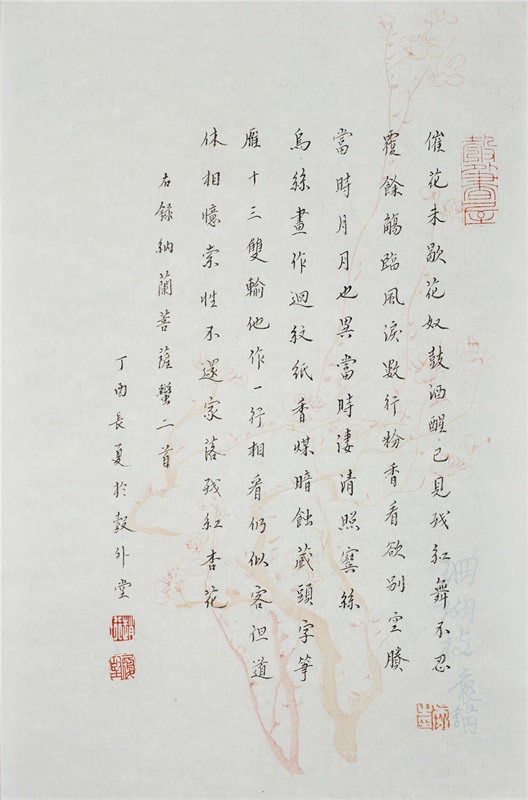 催花未歇花奴鼓酒醒已見残紅舞不忍
覆餘觴臨風淚數行粉香看欲別空賸
當時月月也異當時淒清照鬢絲
烏絲畫作迴紋紙香煤暗蝕藏頭字箏
雁十三雙輸他作一行相看仍似客但道
休相憶索性不還家落残紅杏花
右録納蘭菩薩蠻二首
丁酉長夏於彀外堂